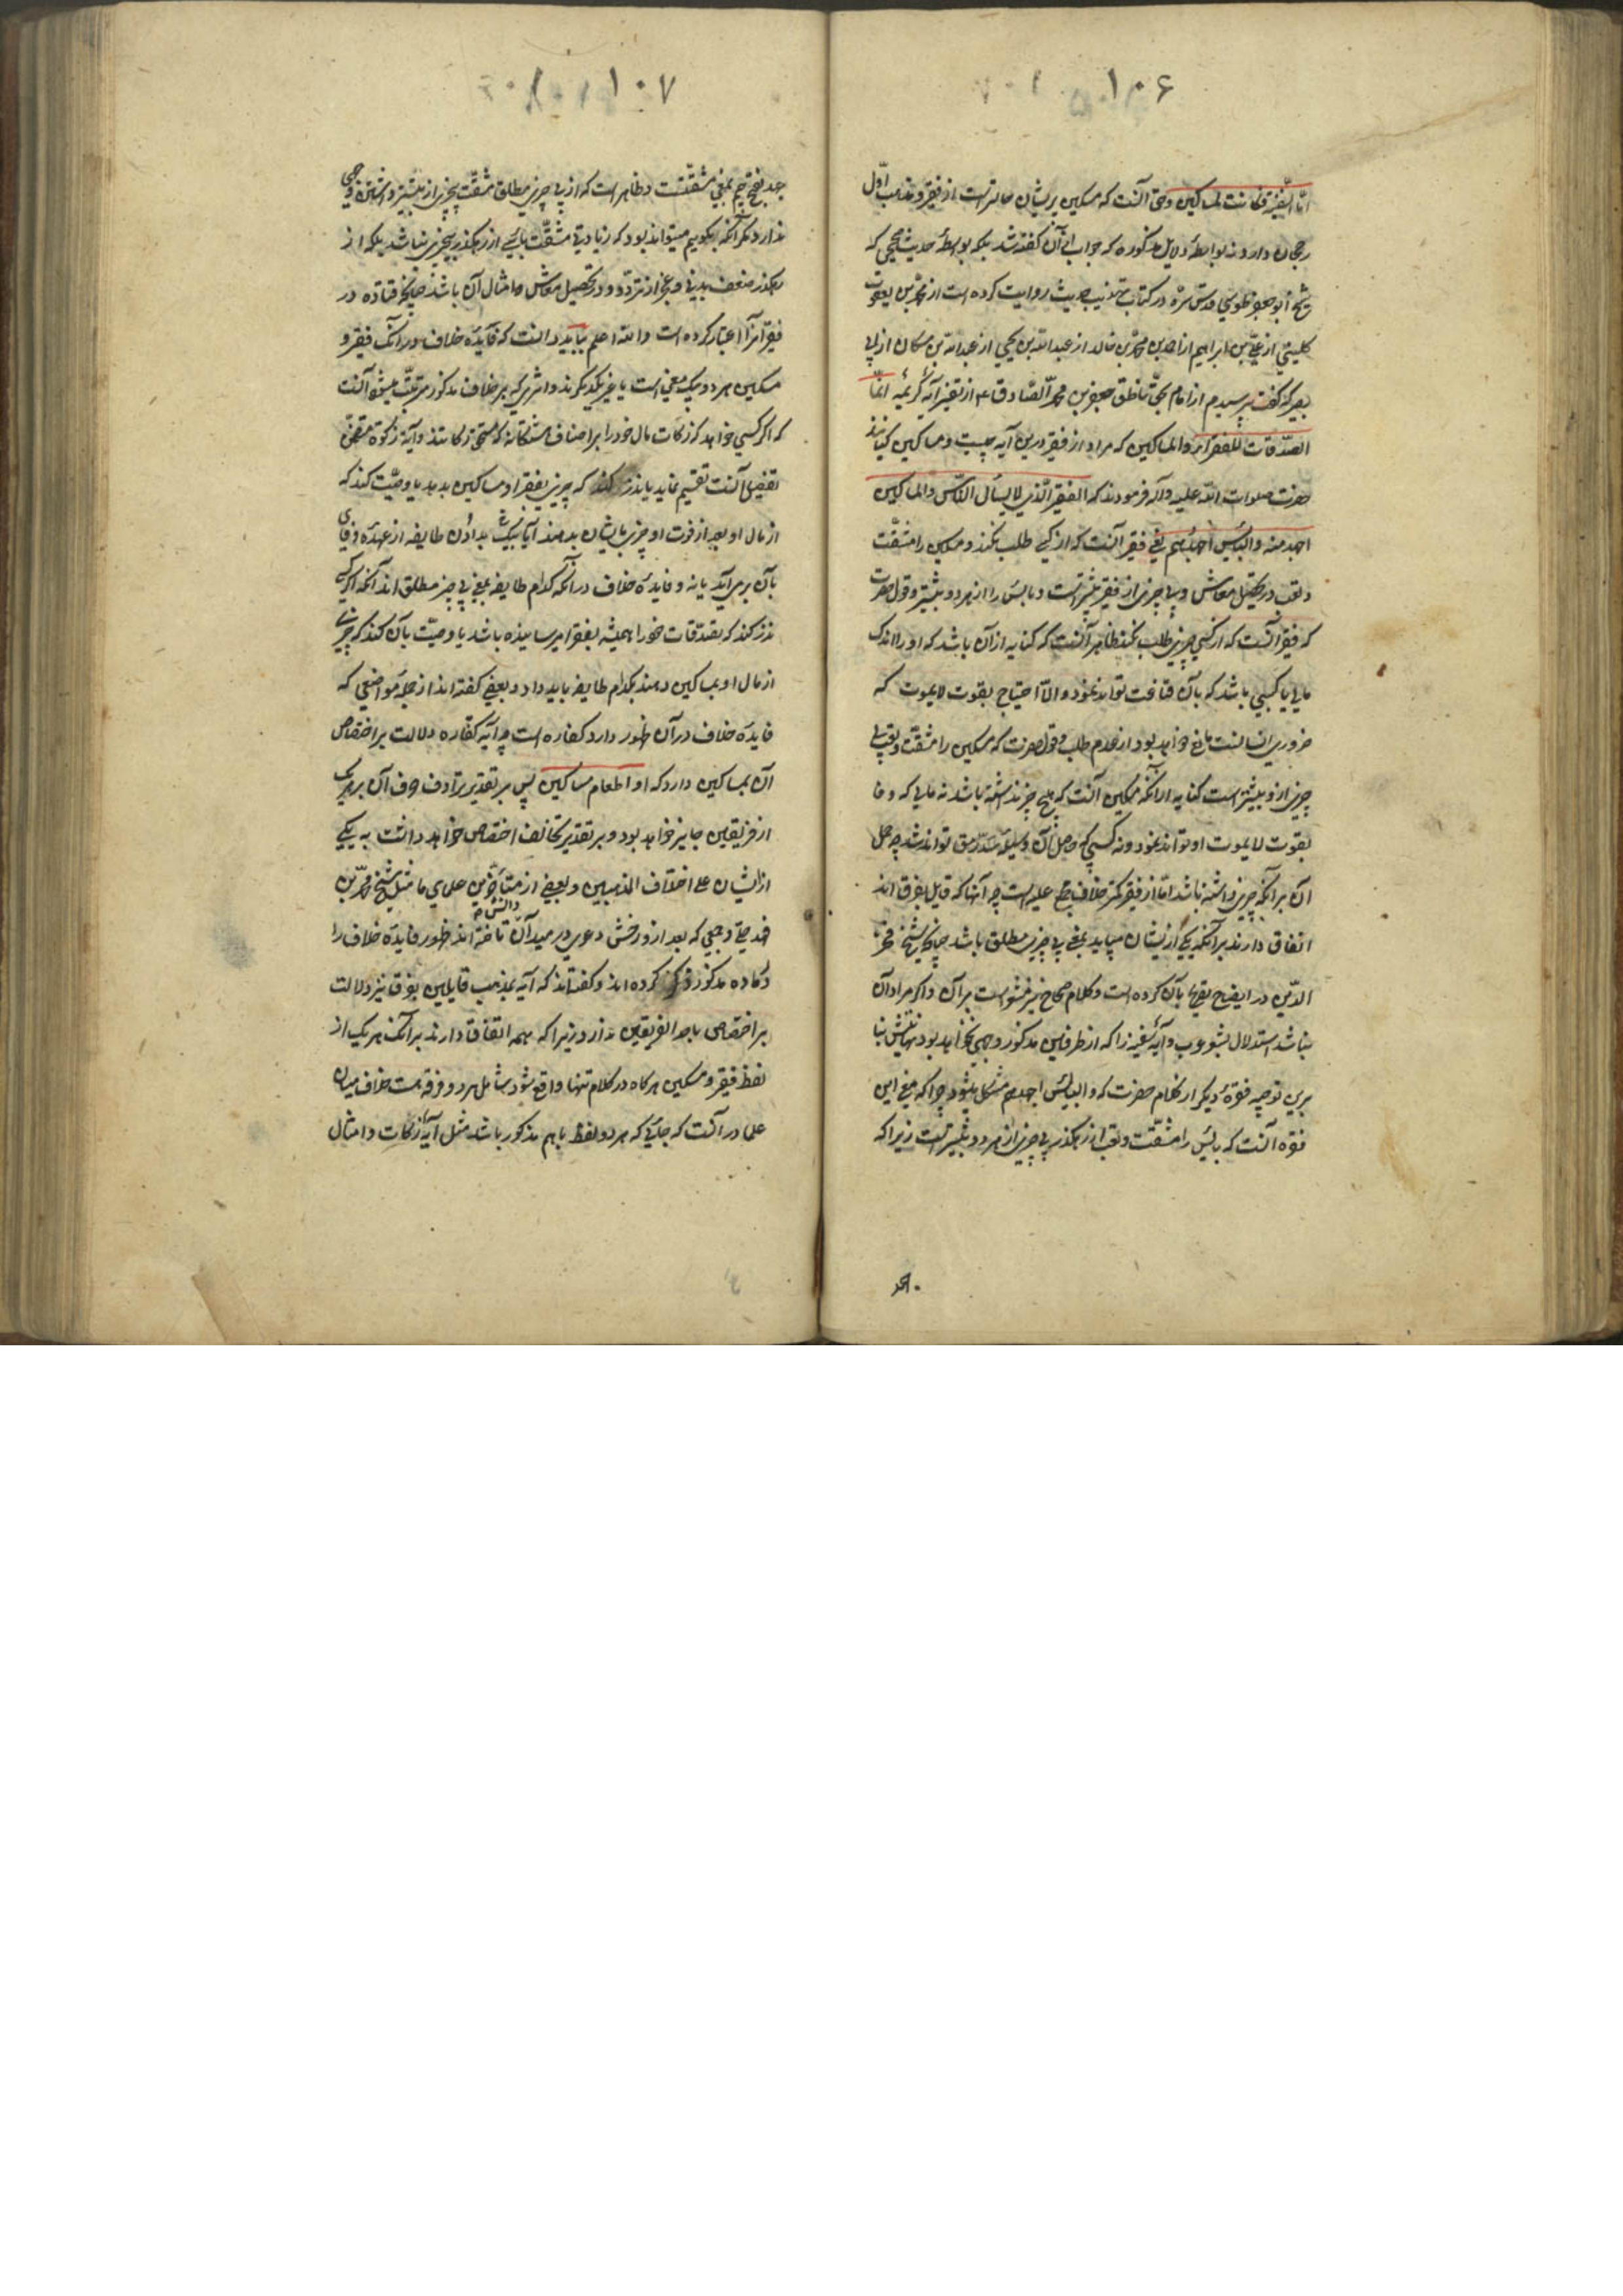 ۱۰۶
امّا السّفینة فکانت لمساکین و حق آنست که مسکین پریشان حالتر است از فقیر و مذهب اوّل
رجحان دارد نه بواسطهٔ دلایل مذکوره که جواب از آن گفته شد بلکه بواسطهٔ حدیث صحیحی که
شیخ ابو جعفر طوسی قدس سرّه در کتاب تهذیب حدیث روایت کرده است از محمّد بن یعقوب
کلینی از علیّ بن ابراهیم از احمد بن محمّد بن خالد از عبد اللّه بن یحیی از عبد اللّه بن مسکان از ابی
بصیر که گفت پرسیدم از امام بحقّ ناطق جعفر بن محمّد الصّادق ع از تفسیر آیهٔ کریمه انّما
الصّدقات للفقراء والمساکین که مراد از فقیر درین آیه چیست و مساکین کیانند
حضرت صلوات اللّه علیه و آله فرمودند که الفقیر الّذی لا یسأل النّاس والمساکین
اجهد منه والبائس اجهدهم یعنی فقیر آنست که از کسی طلب نکند و مسکین را مشقّت
و تعب در تحصیل معاش و بی چیزی از فقیر بیشتر است و بائس را از هر دو بیشتر و قول حضرت
که فقیر آنست که از کسی چیزی طلب نکند ظاهر آنست که کنایه از آن باشد که او را اندک
مالی یا کسبی باشد که بآن قناعت تواند نمود و الّا احتیاج بقوت لا یموت که
ضروری انسانست مانع خواهد بود از عدم طلب و قول حضرت که مسکین را مشقّت و تعب بی
چیزی از و بیشتر است کنایه از آنکه مسکین آنست که هیچ چیز نداشته باشد نه مالی که وفا
بقوت لا یموت او تواند نمود و نه کسبی که حاصل آن وسیلهٔ سدّ رمق تواند شد چه حمل
آن بر آنکه چیزی داشته باشد امّا از فقیر کمتر خلاف مجمع علیه است چه آنها که قایل بفرق اند
اتفاق دارند بر آنکه یکی از ایشان میباید بمعنی بی چیزی مطلق باشد چنانکه شیخ فخر
الدّین در ایضاح تصریح بآن کرده است و کلام صحاح نیز مشعر است بر آن و اگر مراد آن
نباشد استدلال بشعر عرب و آیهٔ سفینه را که از طرفین مذکور وجهی نخواهد بود نهایتش بنا
برین توجیه فقرهٔ دیگر از کلام حضرت که والبائس اجهدهم مشکل میشود چرا که معنی این
فقره آنست که بائس را مشقّت و تعب از رهگذر بی چیزی از هر دو بیشتر است زیرا که
جهد
۱۰۷
جهد بفتح جیم بمعنی مشقّتست و ظاهر است که از بی چیزی مطلق مشقّت بچیزی از بیشتر داشتن وجهی
ندارد مگر آنکه بگوییم میتواند بود که زیادتی مشقّت بائس از رهگذر بیچیزی نباشد بلکه از
رهگذر ضعف بدنی و عجز از تردّد و در تحصیل معاش و امثال آن باشد چنانکه قتاده در
فقیر آنرا اعتبار کرده است واللّه اعلم بباید دانست که فایدهٔ خلاف در آنکه فقیر و
مسکین هر دو بیک معنی است یا غیر یکدیگرند و اثری که بر خلاف مذکور مترتّب میشود آنست
که اگر کسی خواهد که زکات مال خود را بر اصناف هشتگانه که مستحق زکاتند و آیهٔ زکوة متضمّن
تفصیل آنست تقسیم نماید یا نذر کند که چیزی بفقرا و مساکین بدهد یا وصیّت کند که
از مال او بعد از فوت او چیزی بایشان بدهند آیا بیک بدادن طایفه از عهدهٔ وفای
بآن برمی آید یا نه و فایدهٔ خلاف در آنکه کدام طایفه بمعنی بی چیز مطلق اند آنکه اگر کسی
نذر کند که تصدّقات خود را همیشه بفقرا میرسانیده باشد یا وصیّت بآن کند که چیزی
از مال او بمساکین دهند بکدام طایفه باید داد و بعضی گفته اند از جمله مواضعی که
فایدهٔ خلاف در آن ظهور دارد کفاره است چه آیهٔ کفّاره دلالت بر اختصاص
آن بمساکین دارد که او اطعام مساکین پس بر تقدیر ترادف صرف آن بهر یک
از فریقین جایز خواهد بود و بر تقدیر تخالف اختصاص خواهد داشت به یکی
از ایشان علی اختلاف المذهبین و بعضی از متأخّرین علمای ما مثل شیخ محمّد بن
که بعد ازو رخش دعوی در میدان دانش تاخته اند ظهور فایدهٔ خلاف را
در ماده مذکور ذکر کرده اند و گفته اند که آیه بمذهب قایلین بفرق نیز دلالت
بر اختصاص باحد الفریقین ندارد زیرا که همه اتفاق دارند بر آنکه هر یک از
لفظ فقیر و مسکین هر گاه در کلام تنها واقع شود شامل هر دو فرقه است خلاف میان
علما در آنست که جایی که هر دو لفظ با هم مذکور باشد مثل آیهٔ زکات و امثال